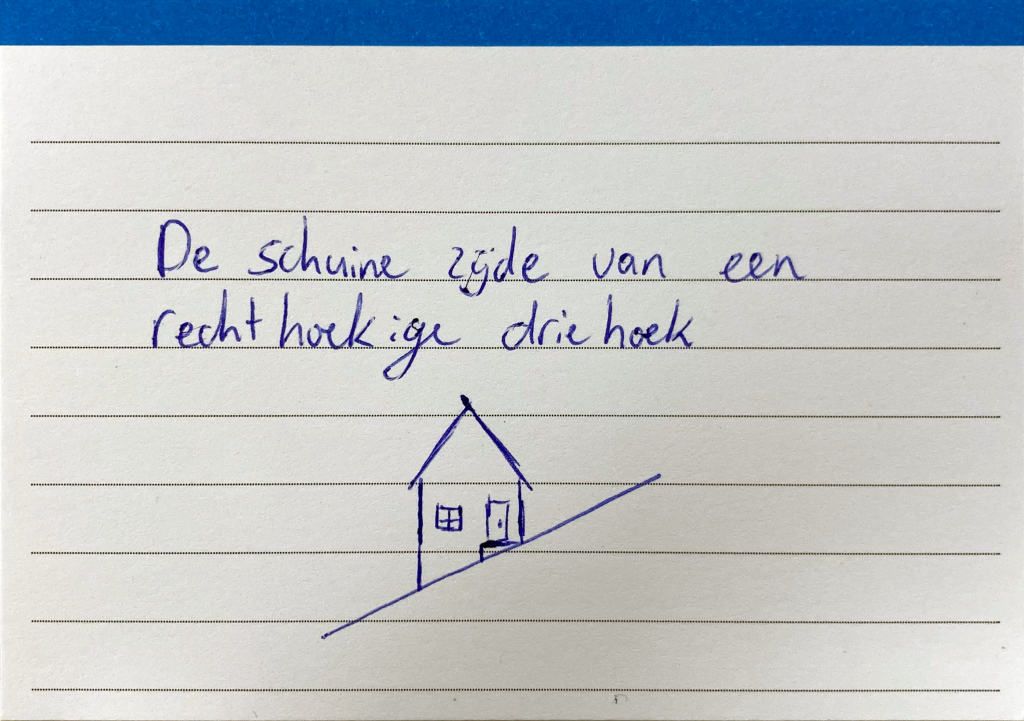 De schuine zijde van een
rechthoekige driehoek